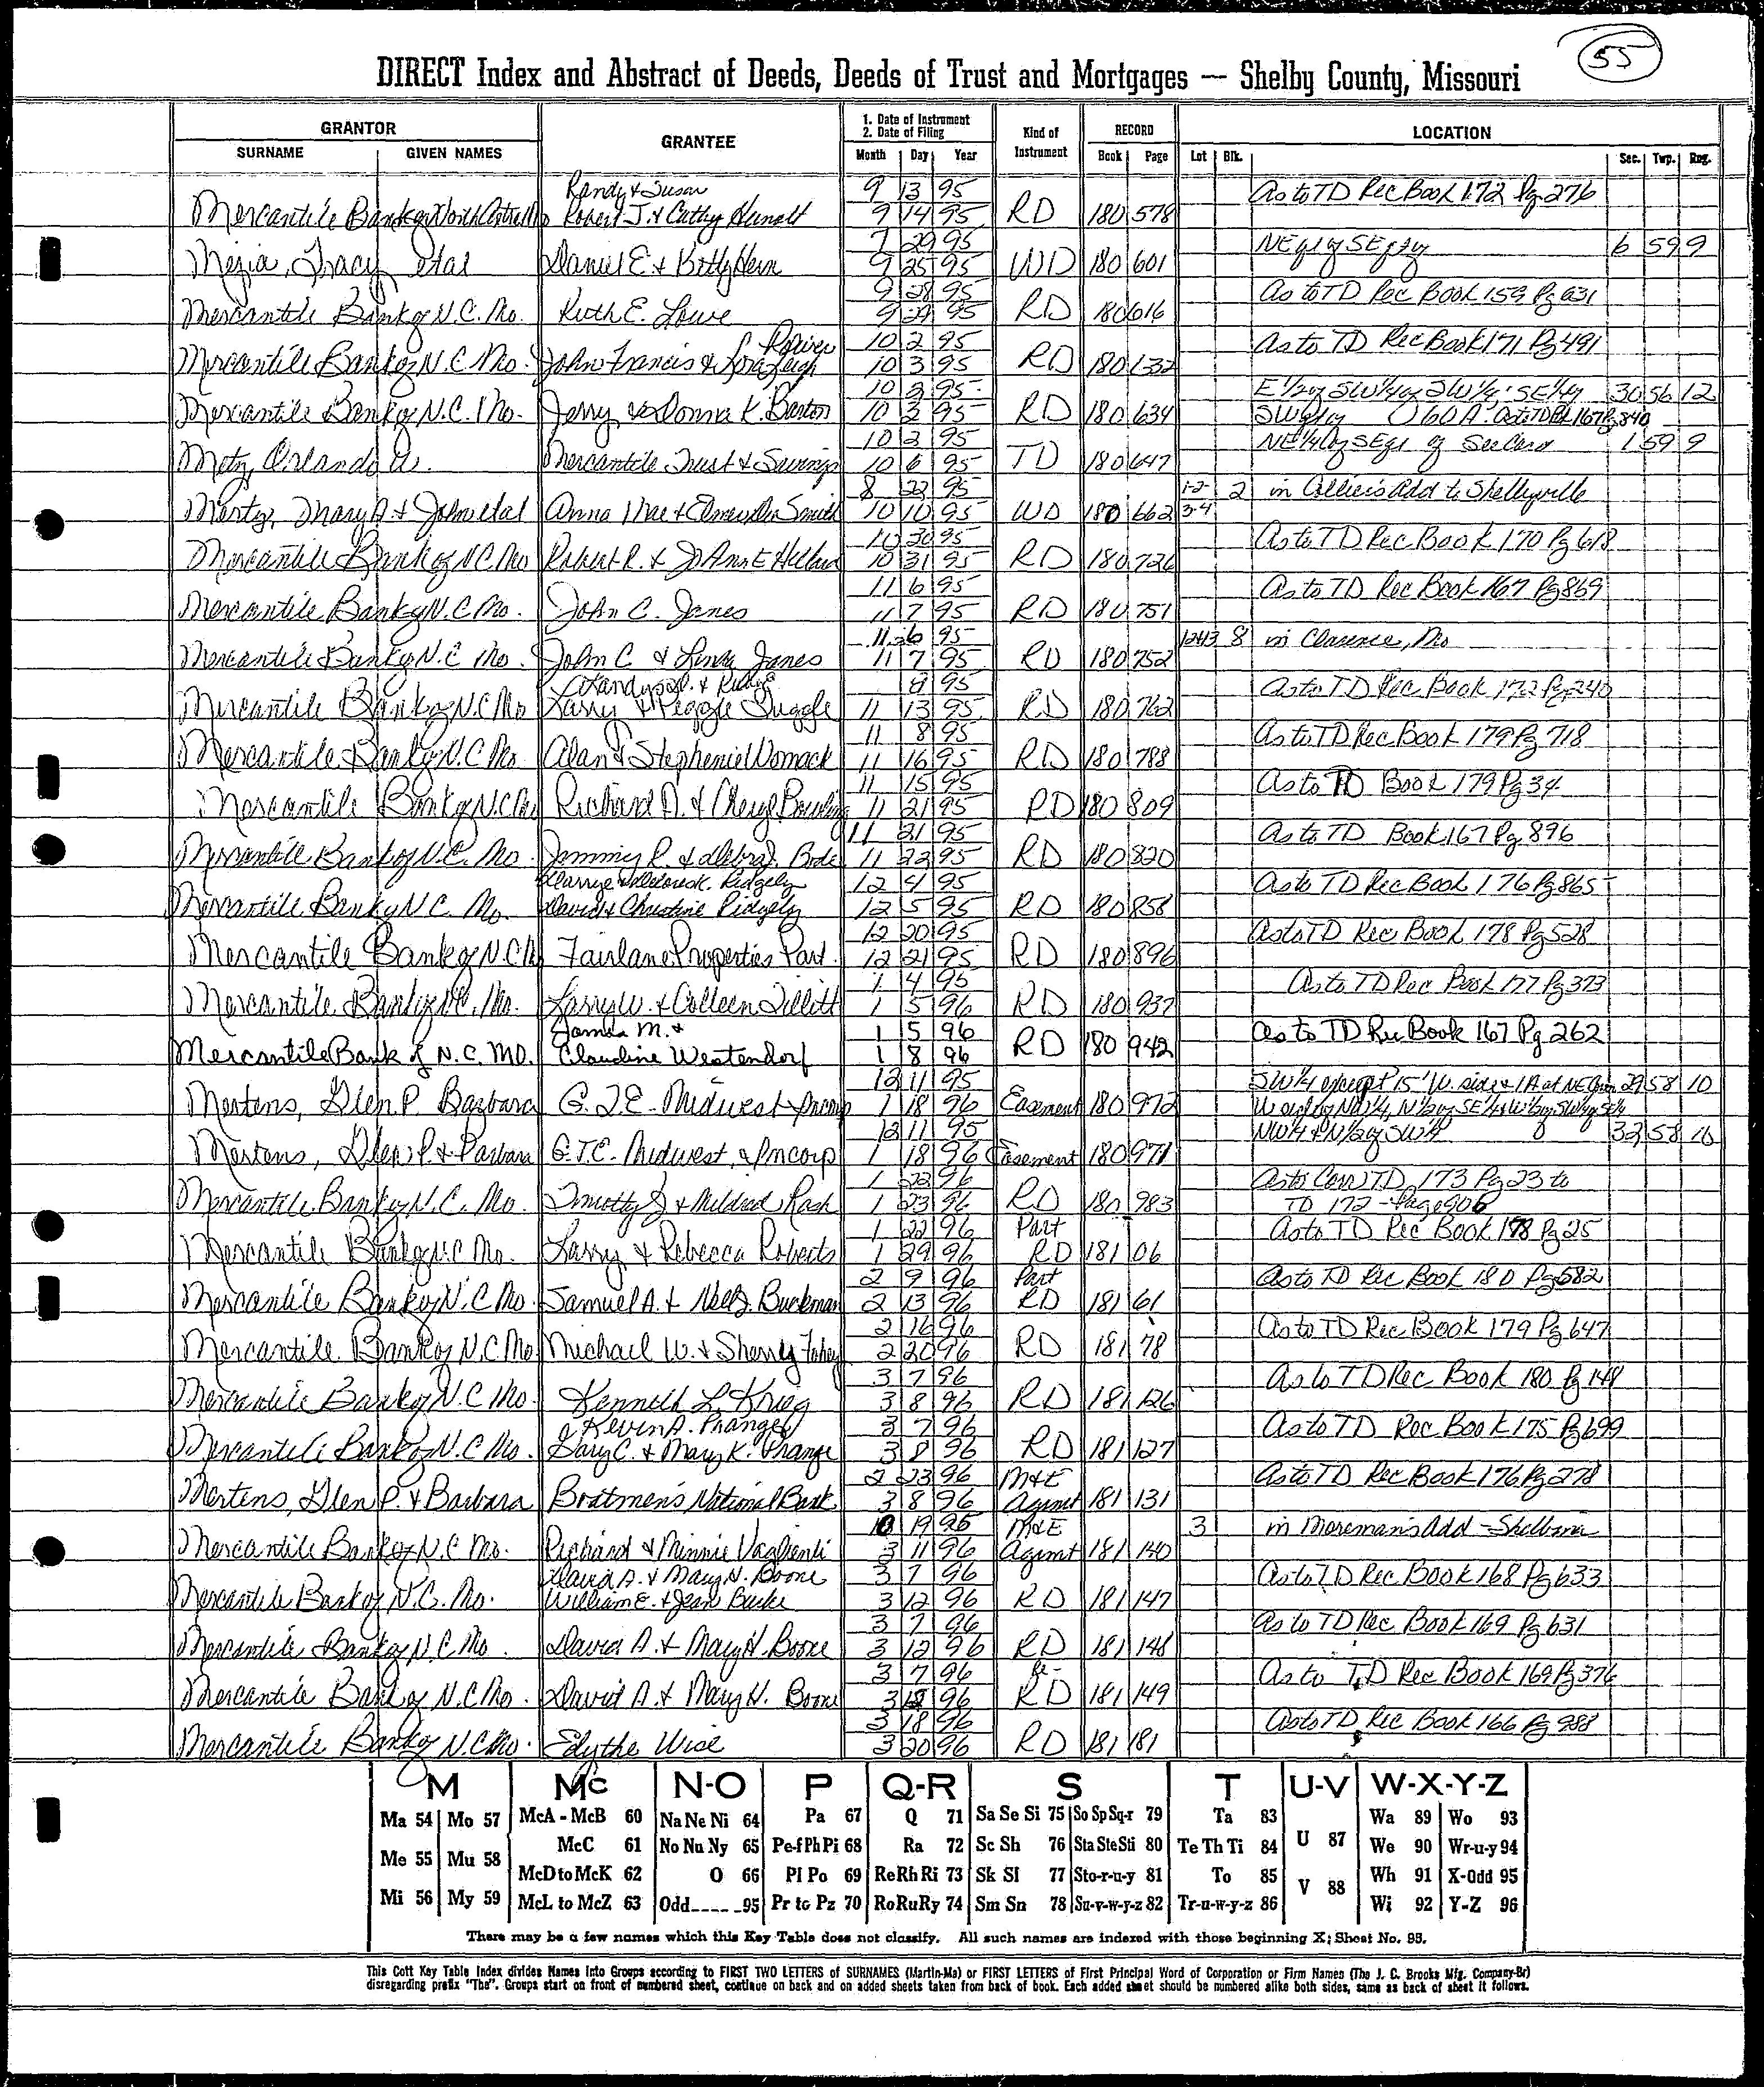 55
DIRECT Index and Abstract of Deeds, Deeds of Trust and Mortgages — Shelby County, Missouri
GRANTOR GRANTEE 1. Date of Instrument 2. Date of Filing Kind of Instrument RECORD LOCATION
SURNAME GIVEN NAMES Month Day Year Book Page Lot Blk. Sec. Twp. Rng.
Randy & Susan 9 13 95 As to TD Rec Book 172 Pg 276
Mercantile Bank of North Robert J. & Cathy 9 14 95 RD 180 578
7 29 95 NE 1/4 of SE 1/4 6 59 9
Tracy etal Daniel E. & Betty 9 25 95 WD 180 601
9 28 95 As to TD Rec Book 159 Pg 631
Mercantile Bank of N.C. Mo. Ruth E. Lowe 9 29 95 RD 180 616
10 2 95 As to TD Rec Book 171 Pg 491
Mercantile Bank of N.C. Mo. John Francis & 10 3 95 RD 180 632
10 2 95 E 1/2 of SW 1/4 of SW 1/4; SE 1/4 30 56 12
Mercantile Bank of N.C. Mo. Jerry & Donna K. Barton 10 3 95 RD 180 634 60 A. As to TD 167 Pg 840
10 2 95 NE 1/4 of SE 1/4 of 1 59 9
Metz, Orlando Mercantile Trust & Savings 10 6 95 TD 180 647
8 22 95 1-2 2 in Collier's Add to Shelbyville
Mary A. & John etal Anna Mae & Smith 10 10 95 WD 180 662 3-4
10 30 95 As to TD Rec Book 170 Pg 618
Mercantile Bank of N.C. Mo Robert R. & JoAnn E 10 31 95 RD 180 726
11 6 95 As to TD Rec Book 167 Pg 869
Mercantile Bank of N.C. Mo. John C. Janes 11 7 95 RD 180 751
11 6 95 12&13 8 in Clarence, Mo
Mercantile Bank of N.C. Mo. John C. & Janes 11 7 95 RD 180 752
8 95 As to TD Rec Book 172 Pg 240
Mercantile Bank of N.C. Mo Larry & Peggie 11 13 95 RD 180 762
11 8 95 As to TD Rec Book 179 Pg 718
Mercantile Bank of N.C. Mo Alan & Stephenie Womack 11 16 95 RD 180 788
11 15 95 As to TD Book 179 Pg 34
Mercantile Bank of N.C. Mo Richard A. & Cheryl 11 21 95 RD 180 809
11 21 95 As to TD Book 167 Pg 896
Mercantile Bank of N.C. Mo. Jimmy R. & Debra J. Bode 11 22 95 RD 180 820
Ridgely 12 4 95 As to TD Rec Book 176 Pg 865
Mercantile Bank of N.C. Mo. David & Christine Ridgely 12 5 95 RD 180 858
12 20 95 As to TD Rec Book 178 Pg 528
Mercantile Bank of N.C. Mo Fairlane Properties Part. 12 21 95 RD 180 896
1 4 95 As to TD Rec Book 177 Pg 373
Mercantile Bank of N.C. Mo. Larry W. & Colleen Tillitt 1 5 96 RD 180 937
James M. & 1 5 96 As to TD Rec Book 167 Pg 262
Mercantile Bank of N.C. MO. Claudine Westendorf 1 8 96 RD 180 942
12 11 95 SW 1/4 except 15' W. side & 1 A at NE Cor 29 58 10
Mertens, Glen P. Barbara G.T.E. Midwest 1 18 96 Easement 180 972
12 11 95 NW 1/4 & N 1/2 of SW 1/4 32 58 10
Mertens, Glen P. & Barbara G.T.E. Midwest, Incorp 1 18 96 Easement 180 971
1 22 96 As to Corr TD 173 Pg 23 to
Mercantile Bank of N.C. Mo. Timothy J & Mildred Rash 1 23 96 RD 180 983 TD 172 - Page 906
1 22 96 Part As to TD Rec Book 178 Pg 25
Mercantile Bank of N.C. Mo. Larry & Rebecca Roberts 1 29 96 RD 181 06
2 9 96 Part As to TD Rec Book 180 Pg 582
Mercantile Bank of N.C. Mo. Samuel A. & Buckman 2 13 96 RD 181 61
2 16 96 As to TD Rec Book 179 Pg 647
Mercantile Bank of N.C. Mo Michael W. & Sherry Fahey 2 20 96 RD 181 78
3 7 96 As to TD Rec Book 180 Pg 148
Mercantile Bank of N.C. Mo. Kenneth L. Krieg 3 8 96 RD 181 126
Kevin A. Prange 3 7 96 As to TD Rec Book 175 Pg 699
Mercantile Bank of N.C. Mo. Gary C. & Mary K. Prange 3 8 96 RD 181 127
2 23 96 M&E As to TD Rec Book 176 Pg 278
Mertens, Glen P. & Barbara Boatmen's National Bank 3 8 96 Agmnt 181 131
10 19 95 M&E 3 in Moreman's Add - Shelbina
Mercantile Bank of N.C. Mo. Richard & Minnie Vaglienti 3 11 96 Agmnt 181 140
David A. & Mary N. Boone 3 7 96 As to TD Rec Book 168 Pg 633
Mercantile Bank of N.C. Mo. William E. & Jean Burke 3 12 96 RD 181 147
3 7 96 As to TD Rec Book 169 Pg 631
Mercantile Bank of N.C. Mo. David A. & Mary N. Boone 3 12 96 RD 181 148
3 7 96 As to TD Rec Book 169 Pg 376
Mercantile Bank of N.C. Mo. David A. & Mary N. Boone 3 12 96 RD 181 149
3 18 96 As to TD Rec Book 166 Pg 988
Mercantile Bank of N.C. Mo. Edythe Wise 3 20 96 RD 181 181
M Mc N-O P Q-R S T U-V W-X-Y-Z
Ma 54 Mo 57 McA - McB 60 Na Ne Ni 64 Pa 67 Q 71 Sa Se Si 75 So Sp Sq-r 79 Ta 83 U 87 Wa 89 Wo 93
Me 55 Mu 58 McC 61 No Nu Ny 65 Pe-f Ph Pi 68 Ra 72 Sc Sh 76 Sta Ste Sti 80 Te Th Ti 84 We 90 Wr-u-y 94
McD to McK 62 O 66 Pl Po 69 Re Rh Ri 73 Sk Sl 77 Sto-r-u-y 81 To 85 V 88 Wh 91 X-Odd 95
Mi 56 My 59 McL to McZ 63 Odd 95 Pr to Pz 70 Ro Ru Ry 74 Sm Sn 78 Su-v-w-y-z 82 Tr-u-w-y-z 86 Wi 92 Y-Z 96
There may be a few names which this Key Table does not classify. All such names are indexed with those beginning X; Sheet No. 95.
This Cott Key Table Index divides Names into Groups according to FIRST TWO LETTERS of SURNAMES (Martin-Ma) or FIRST LETTERS of First Principal Word of Corporation or Firm Names (The J. C. Brooks Mfg. Company-Br)
disregarding prefix "The". Groups start on front of numbered sheet, continue on back and on added sheets taken from back of book. Each added sheet should be numbered alike both sides, same as back of sheet it follows.